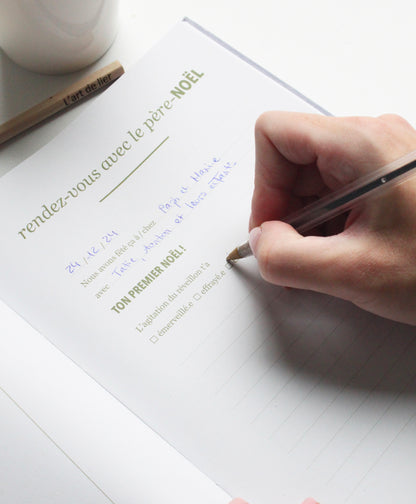 l'art de lier
rendez-vous avec le père-NOËL
24/12/24
Nous avons fêté ça à / chez Papi et Mamie
avec Tatie, tonton et leurs
TON PREMIER NOËL!
L'agitation du réveillon t'a
☐ émerveillé.e ☐ effrayé.e